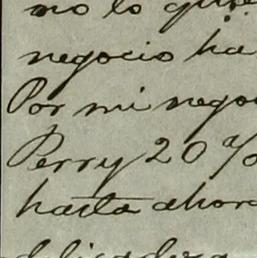 no lo quise
negocio ha
Por mi nego
Perry 20%
hasta ahora